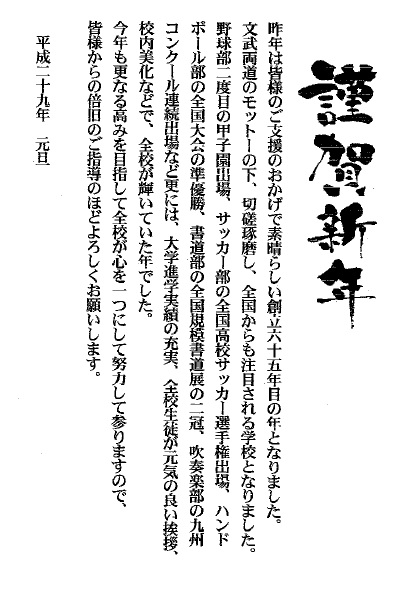 謹賀新年
昨年は皆様のご支援のおかげで素晴らしい創立六十五年目の年となりました。
文武両道のモットーの下、切磋琢磨し、全国からも注目される学校となりました。
野球部二度目の甲子園出場、サッカー部の全国高校サッカー選手権出場、ハンド
ボール部の全国大会の準優勝、書道部の全国規模書道展の二冠、吹奏楽部の九州
コンクール連続出場など更には、大学進学実績の充実、全校生徒が元気の良い挨拶、
校内美化などで、全校が輝いていた年でした。
今年も更なる高みを目指して全校が心を一つにして努力して参りますので、
皆様からの倍旧のご指導のほどよろしくお願いします。
平成二十九年　元旦